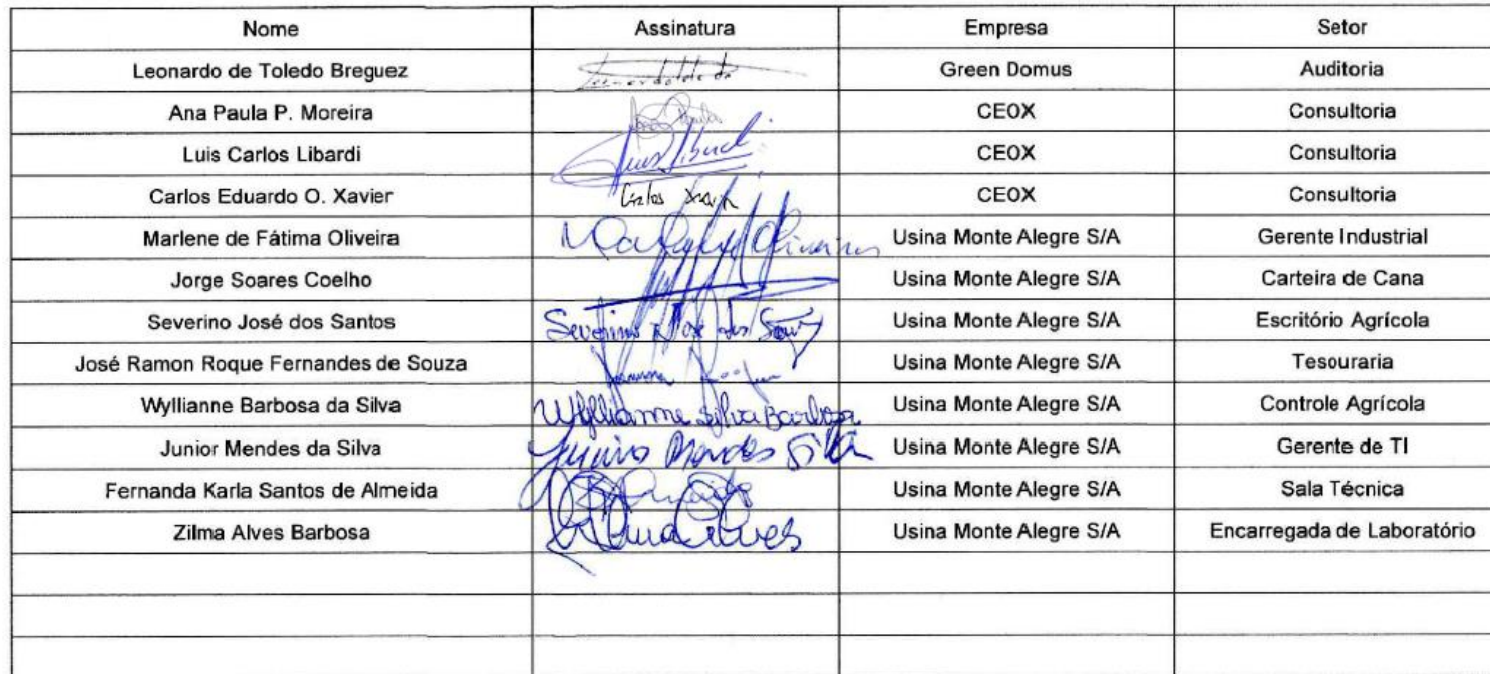 Nome Assinatura Empresa Setor
Leonardo de Toledo Breguez Green Domus Auditoria
Ana Paula P. Moreira Ana Paula CEOX Consultoria
Luis Carlos Libardi Luis Libardi CEOX Consultoria
Carlos Eduardo O. Xavier Carlos Xavier CEOX Consultoria
Marlene de Fátima Oliveira Oliveira Usina Monte Alegre S/A Gerente Industrial
Jorge Soares Coelho Usina Monte Alegre S/A Carteira de Cana
Severino José dos Santos Severino José dos Santos Usina Monte Alegre S/A Escritório Agrícola
José Ramon Roque Fernandes de Souza Usina Monte Alegre S/A Tesouraria
Wyllianne Barbosa da Silva Wyllianne Silva Barbosa Usina Monte Alegre S/A Controle Agrícola
Junior Mendes da Silva Junior Mendes Silva Usina Monte Alegre S/A Gerente de TI
Fernanda Karla Santos de Almeida Usina Monte Alegre S/A Sala Técnica
Zilma Alves Barbosa Zilma Alves Usina Monte Alegre S/A Encarregada de Laboratório